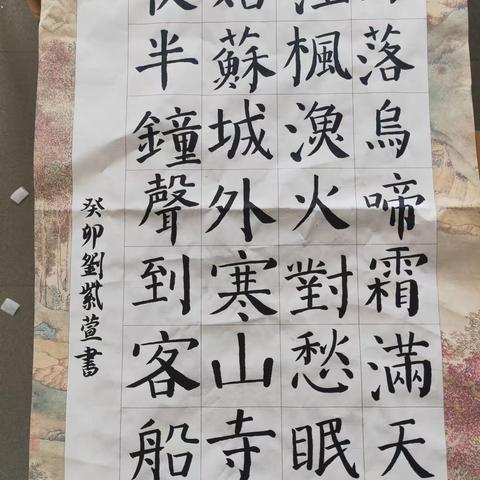 落烏啼霜滿天
江楓漁火對愁眠
姑蘇城外寒山寺
夜半鐘聲到客船
癸卯劉紫萱書